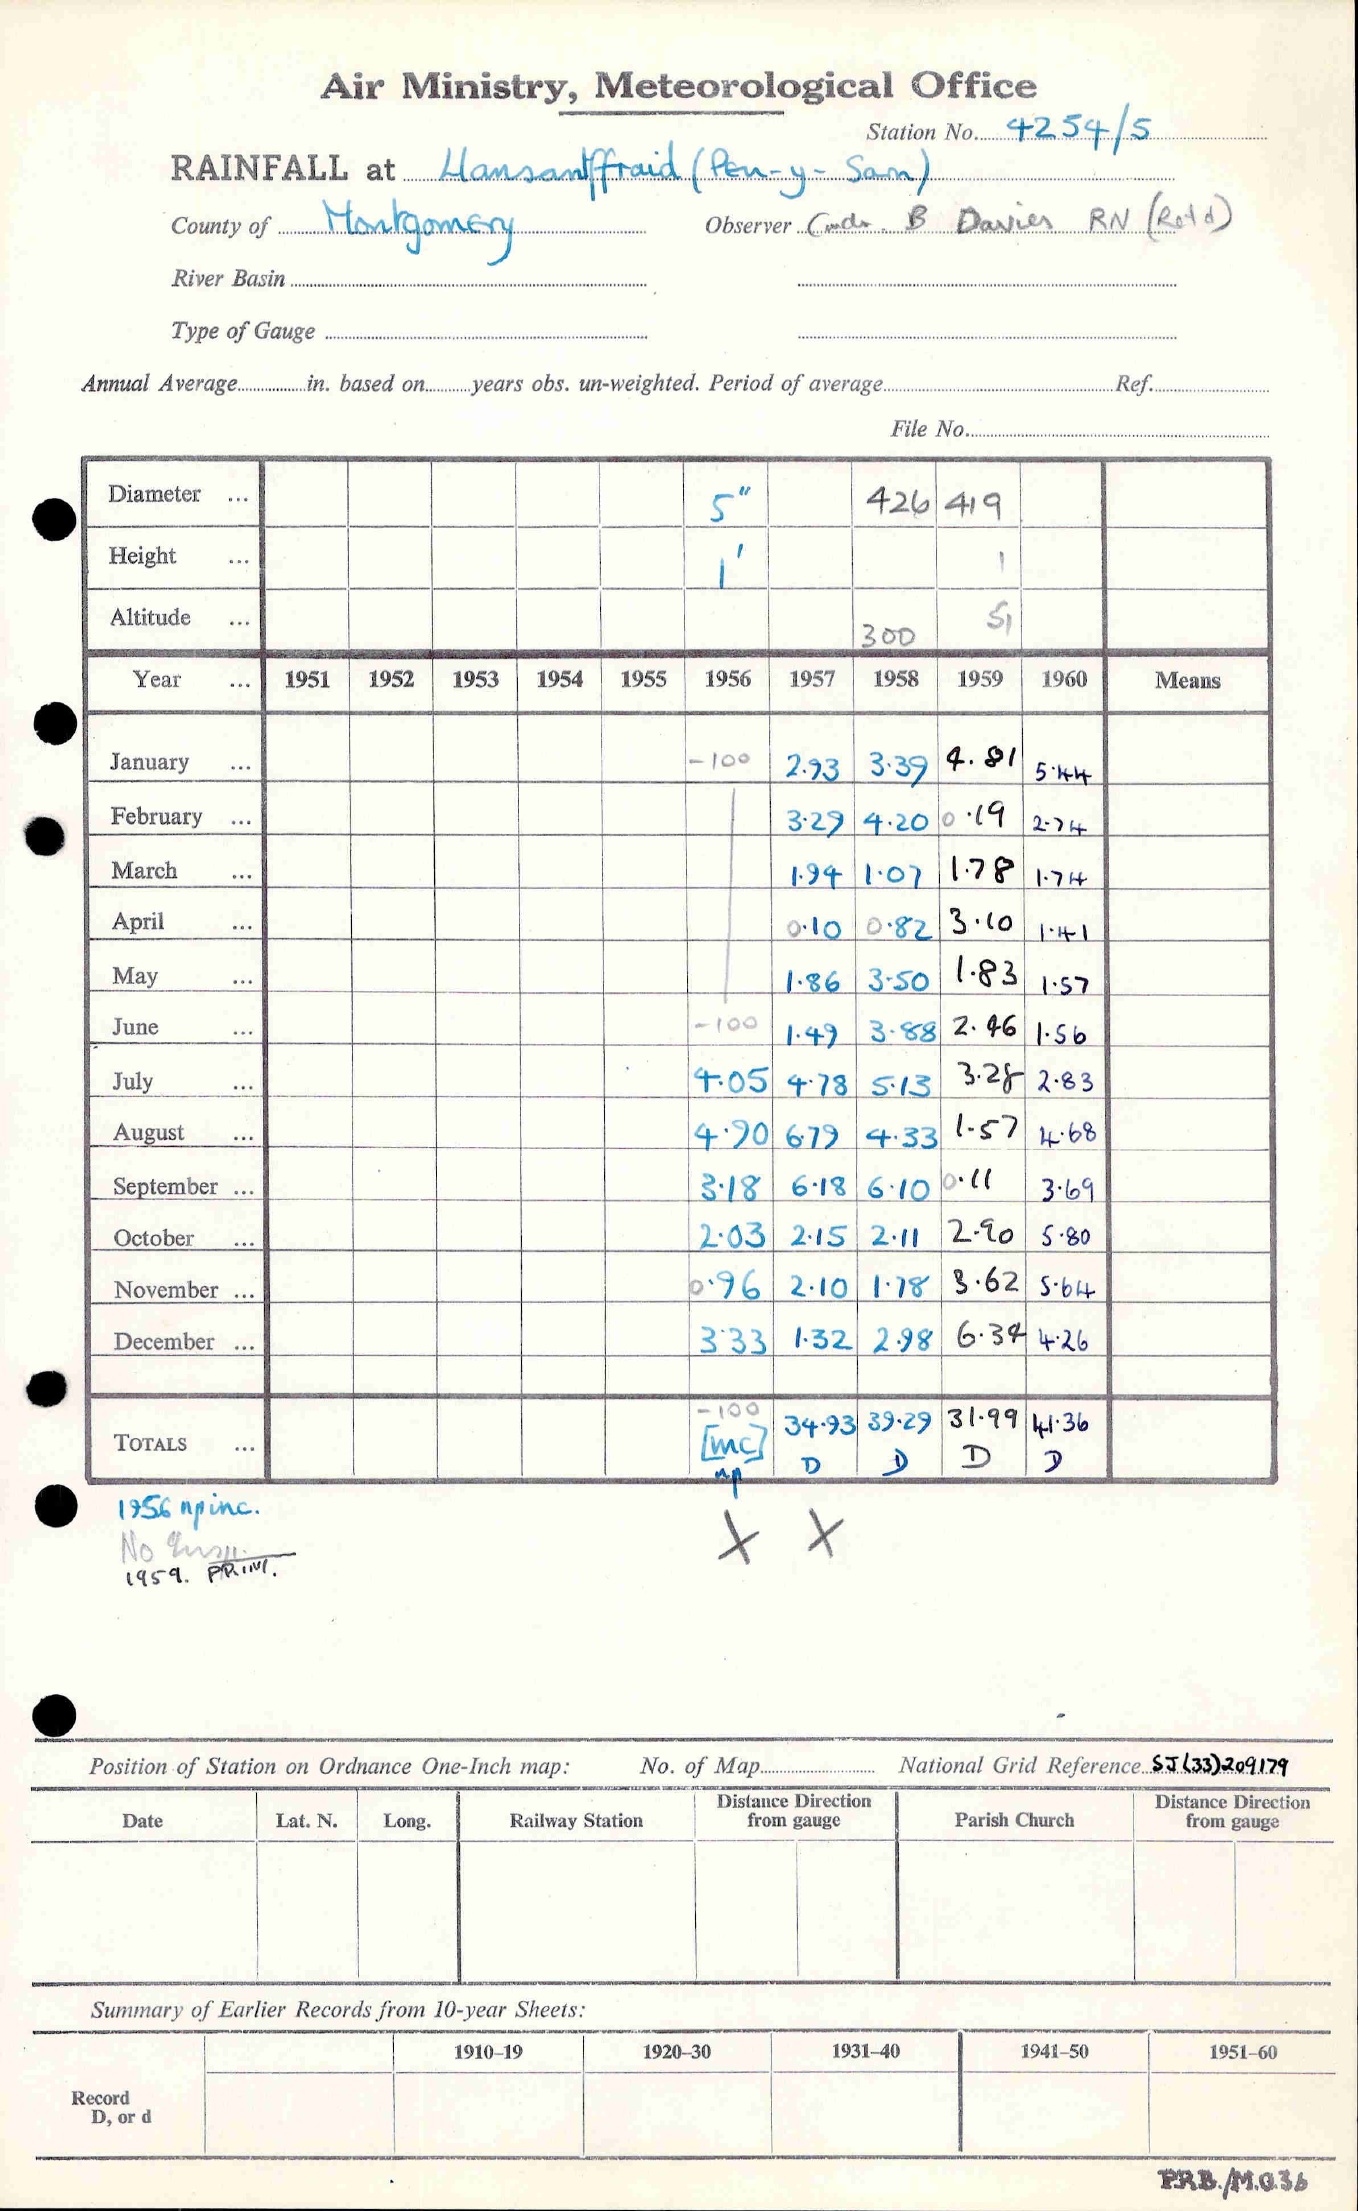 Air Ministry, Meteorological Office
Station No. 4254/5
RAINFALL at Llansantffraid (Pen-y-Sarn)
County of Montgomery Observer Cmdr. B Davies RN (Retd)
River Basin
Type of Gauge
Annual Average in. based on years obs. un-weighted. Period of average Ref.
File No.
Diameter ... 5" 426 419
Height ... 1' 1
Altitude ... 300
Year ... 1951 1952 1953 1954 1955 1956 1957 1958 1959 1960 Means
January ... -100 2.93 3.39 4.81 5.44
February ... 3.29 4.20 0.19 2.74
March ... 1.94 1.07 1.78 1.74
April ... 0.10 0.82 3.10 1.41
May ... 1.86 3.50 1.83 1.57
June ... -100 1.49 3.88 2.46 1.56
July ... 4.05 4.78 5.13 3.28 2.83
August ... 4.90 6.79 4.33 1.57 4.68
September ... 3.18 6.18 6.10 0.11 3.69
October ... 2.03 2.15 2.11 2.90 5.80
November ... 0.96 2.10 1.78 3.62 5.64
December ... 3.33 1.32 2.98 6.34 4.26
TOTALS ... -100 34.93 39.29 31.99 41.36
[inc] D D D D
np
1956 np inc. X X
No
1959. PRINI.
Position of Station on Ordnance One-Inch map: No. of Map National Grid Reference SJ(33)209179
Date Lat. N. Long. Railway Station Distance Direction from gauge Parish Church Distance Direction from gauge
Summary of Earlier Records from 10-year Sheets:
1910–19 1920–30 1931–40 1941–50 1951–60
Record
D, or d
P.R.B./M.O.36